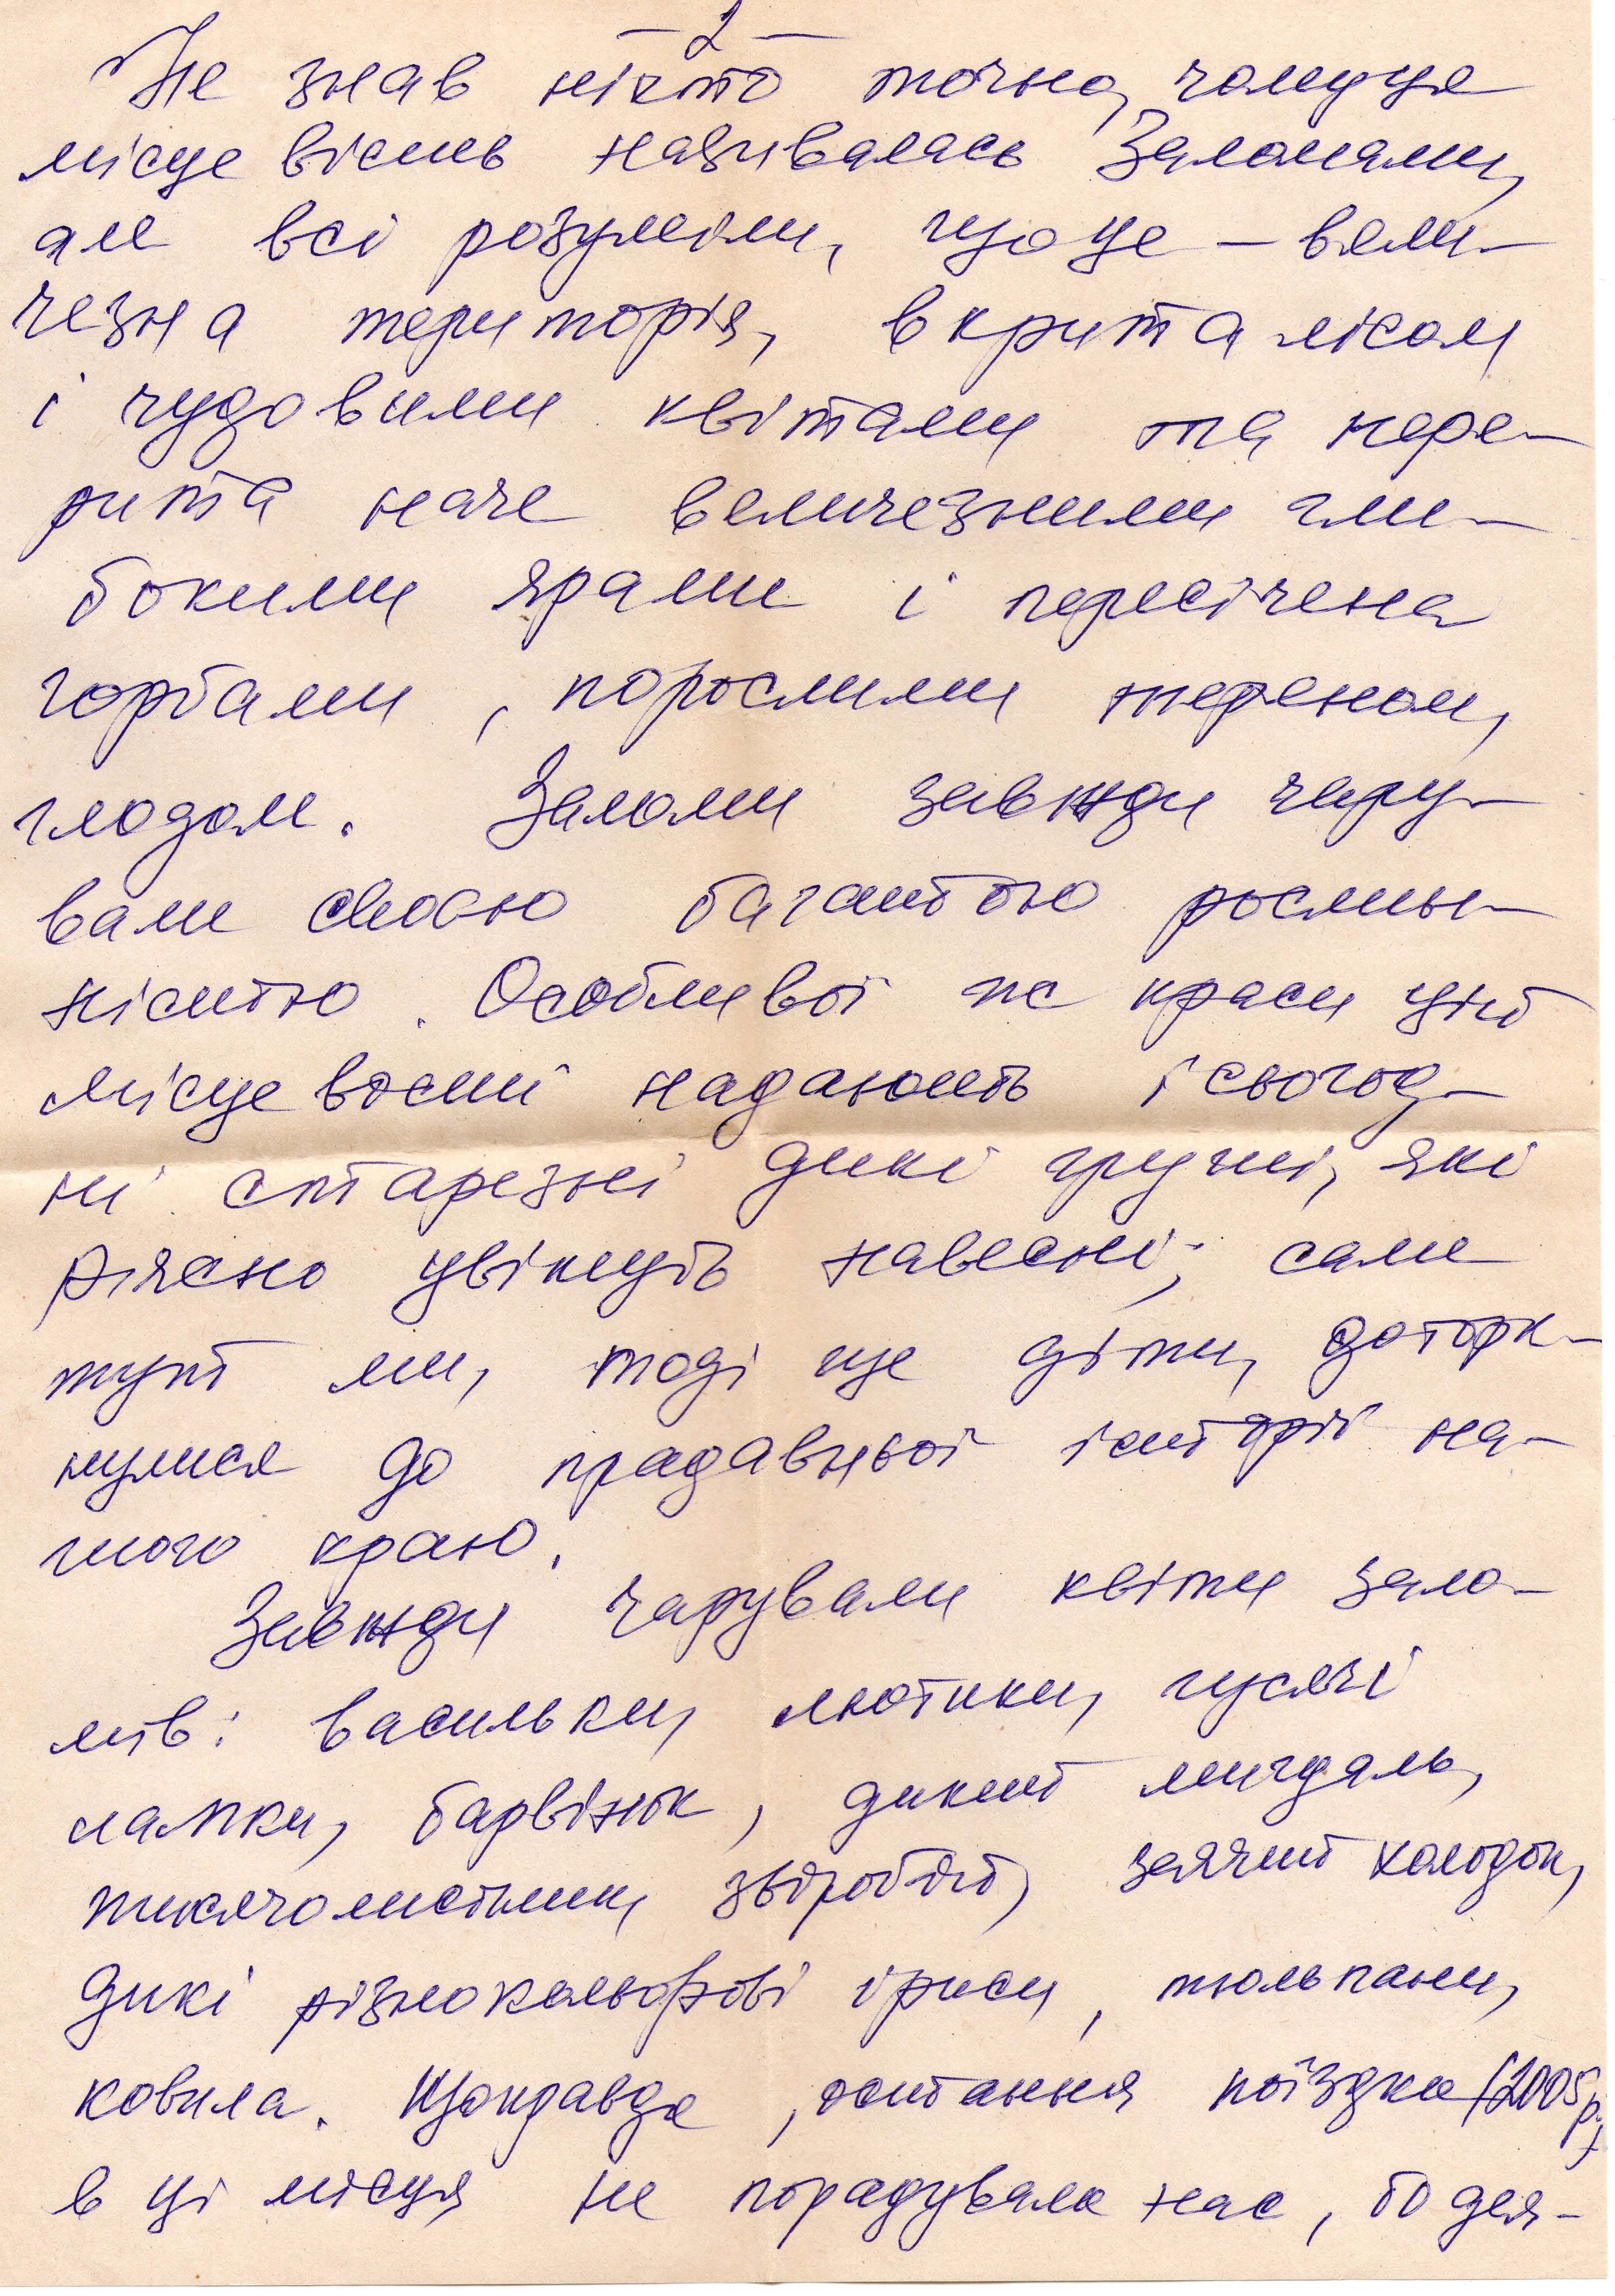 — 2 —
Не знав ніхто точно, чому ця
місцевість називалась Заломами,
але всі розуміли, що це – вели-
чезна територія, вкрита лісом
і чудовими квітами та пере-
рита наче величезними гли-
бокими ярами і пересічена
горбами, порослими тереном,
глодом. Заломи завжди чару-
вали своєю багатою рослин-
ністю. Особливої ж краси цій
місцевості надають і сьогод-
ні старезні дикі груші, які
рясно цвінуть навесні; саме
тут ми, тоді ще діти, доторк-
нулися до прадавньої історії на-
шого краю.
Завжди чарували квіти зало-
мів: васильки, лютики, гусячі
лапки, барвінок, дикий мигдаль,
тисячолистник, звіробій, заячий холодок,
дикі різнокольорові іриси, тюльпани,
ковила. Щоправда, остання поїздка (2005р.)
в ці місця не порадувала нас, бо дея-